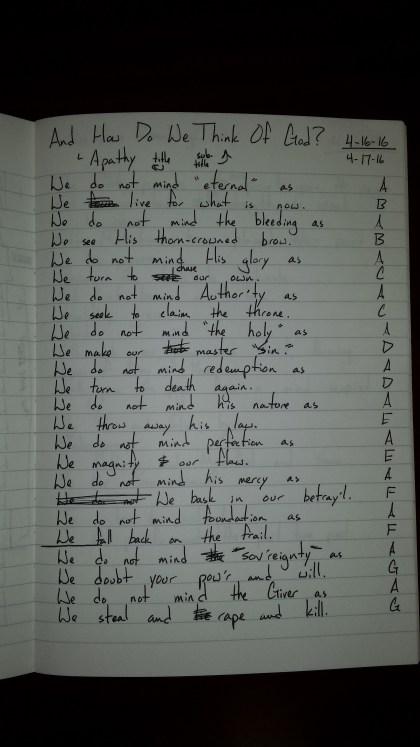 And How Do We Think Of God? 4-16-16
Apathy title sub-title 4-17-16
We do not mind "eternal" as A
We live for what is now. B
We do not mind the bleeding as A
We see His thorn-crowned brow. B
We do not mind His glory as A
We turn to chase our own. C
We do not mind Author'ty as A
We seek to claim the throne. C
We do not mind "the holy" as A
We make our master "sin." D
We do not mind redemption as A
We turn to death again. D
We do not mind his nature as A
We throw away his law. E
We do not mind perfection as A
We magnify our flaw. E
We do not mind his mercy as A
We bask in our betray'l. F
We do not mind foundation as A
We fall back on the frail. F
We do not mind "sov'reignty" as A
We doubt your pow'r and will. G
We do not mind the Giver as A
We steal and rape and kill. G